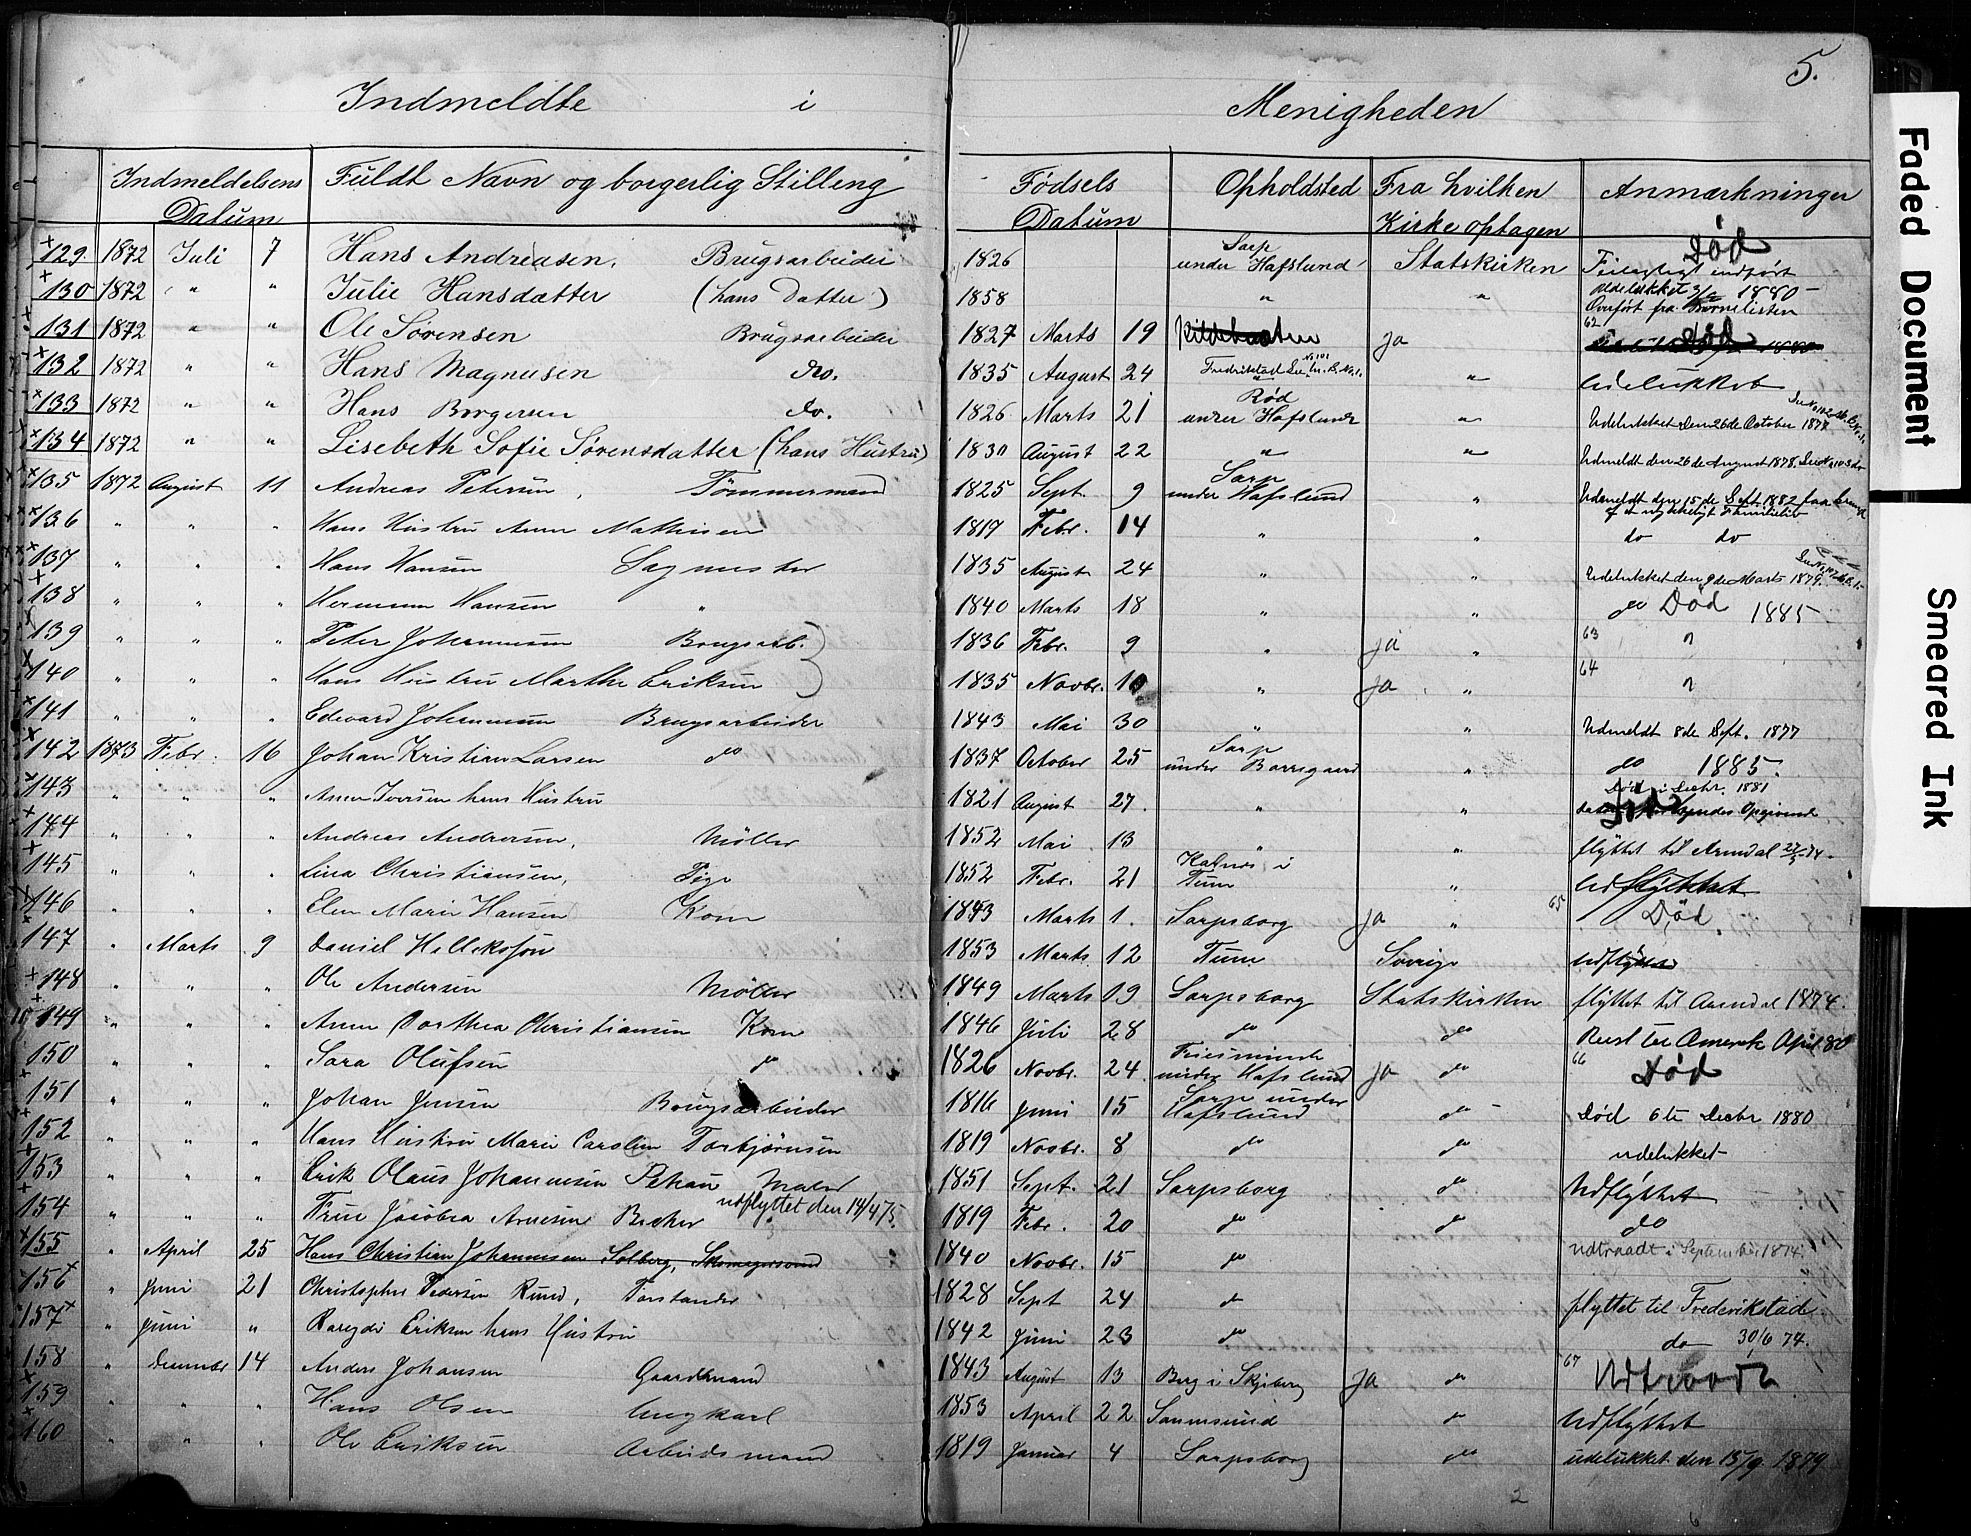 5.
Indmeldte i Menigheden
Indmeldelsens Datum Fuldt Navn og borgerlig Stilling Fødsels Datum Opholdsted Fra hvilken Kirke optagen Anmærkninger
129. 1872 Juli 7 Hans Andreasen, Brugsarbeider 1826 Sarp under Hafslund Statskirken Død Feilagtigt indført
130 1872 " " Julie Hansdatter (hans Datter) 1858 " " Udelukket 1880 Overført fra Børnelisten
131 1872 " " Ole Sørensen Brugsarbeider 1827 Marts 19 ja 62 Død
132 1872 " " Hans Magnusen do. 1835 August 24 Fredrikstad See No 101 " Udelukket
133 1872 " " Hans Borgersen do. 1826 Marts 21 Rød under Hafslund " Udelukket den 26de October 1877
134 1872 " " Lisebeth Sofie Sørensdatter (hans Hustru) 1830 August 22 " " Udmeldt den 26de August 1878.
135 1872 August 11 Andreas Petersen, Tømmermand 1825 Sept. 9 Sarp under Hafslund " Udmeldt den 15de Sept. 1882 paa Grund af et ulykkeligt Familieliv
136 " " " Hans Hustru Anne Mathisen 1819 Febr. 14 " " do do
137 " " " Hans Hansen Sagmester 1835 August 24 " " Udelukket den 9de Marts 1879.
138 " " " Herman Hansen " 1840 Marts 18 " " do Død 1885
139 " " " Peter Johannesen Brugsarb. 1836 Febr. 9 " ja " 63
140 " " " Hans Hustru Marthe Eriksen 1835 Novbr. 10 " ja " 64
141 " " " Edvard Johannesen Brugsarbeider 1843 Mai 30 " " Udmeldt 8de Sept. 1877
142 1873 Febr. 16 Johan Kristian Larsen do 1837 October 25 Sarp under Borregaard " do 1885.
143 " " " Anne Iversen hans Hustru 1821 August 27. " " Død i Decbr. 1881
144 " " " Andreas Andersen, Møller 1852 Mai 13 " " flyttet til Arendal
145 " " " Lina Christiansen, Pige 1852 Febr. 21 Kalnes i Tune " Udflyttet
146 " " " Elen Marie Hansen Kone 1843 Marts 1. Sarpsborg ja " 65 Død.
147 " Marts 9 Daniel 1853 Marts 12 Tune Sverige Udflyttet
148 " " " Ole Andersen Møller 1849 Marts 19 Sarpsborg Statskirken flyttet til Arendal 1874.
149 " " " Anne Dorthea Christiansen Kone 1846 Juli 28 do do Reist til Amerik April 80
150 " " " Sara Olufsen do 1826 Novbr. 24 under Hafslund ja do 66 Død
151 " " " Johan Jensen Brugsarbeider 1816 Juni 15 Sarp under Hafslund do Død 6te Decbr 1880
152 " " " Hans Hustru Marie Caroline Torbjørnsen 1819 Novbr. 8 do do udelukket
153 " " " Erik Olaus Johannesen Maler 1851 Sept. 21 Sarpsborg do Udflyttet
154 " " " Frue Jacobea Arnesen Becker udflyttet den 14/4 75. 1819 Febr. 20 do do do
155 " April 25 Hans Christian Johannesen Solberg, Skomagersvend 1840 Novbr. 15 do udtraadt i September 1874.
156 " Juni 21 Christopher Pedersen Ruud, Forstander 1828 Sept 24 do flyttet til Frederikstad
157 " Juni " Eriksen hans Hustru 1842 Juni 23 do do 30/6 74.
158 " December 14 Anders Johansen Gaardmand 1843 August 13 Berg i Skjeberg ja do 67 Udtraadt
159 " " " Hans Olsen Ungkarl 1853 April 22 Sannesund do Udflyttet
160 " " " Ole Eriksen Arbeidsmand 1819 Januar 4 Sarpsborg do udelukket den 15/9 1879
Faded Document
Smeared Ink